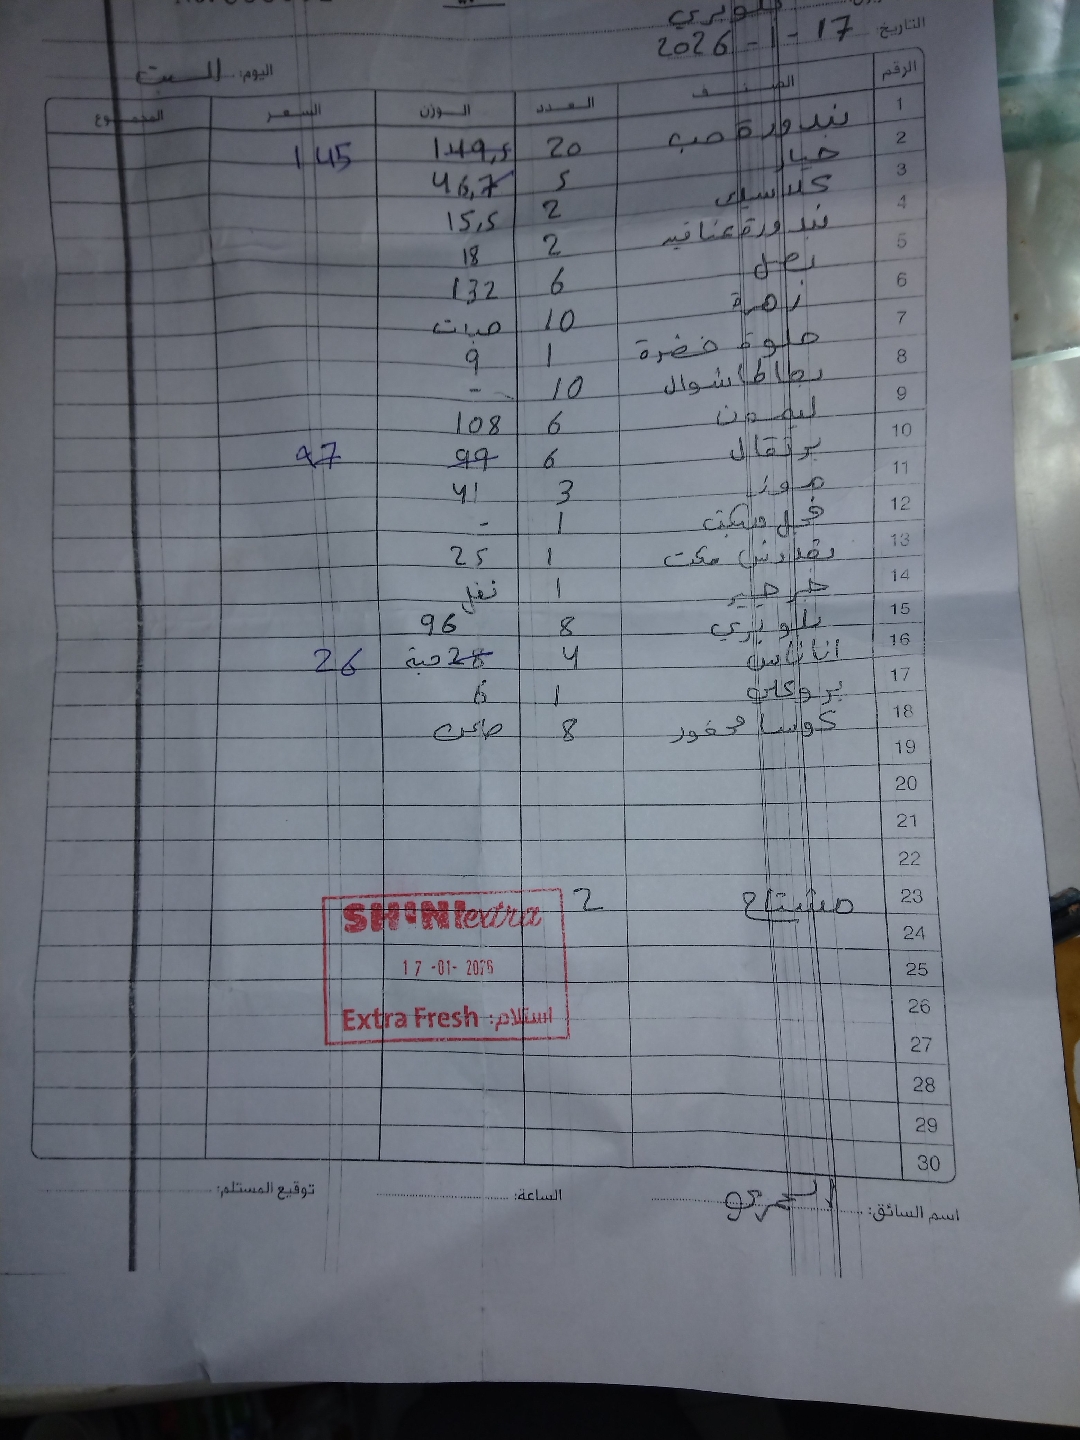 التاريخ: 17-1-2026
اليوم: السبت
الرقم الصنف العدد الوزن السعر المجموع
1 بندورة حب 20 149,5 145
2 خيار 5 46,7
3 كلاسيك 2 15,5
4 بندورة عناقيد 2 18
5 بصل 6 132
6 زهرة 10 حبات
7 حلوة خضرة 1 9
8 بطاطا شوال 10 -
9 ليمون 6 108
10 برتقال 6 99 97
11 موز 3 41
12 فجل مكبت 1 -
13 بقدونس مكبت 1 25
14 جرجير 1
15 بلوبري 8 96
16 اناناس 4 28 حبة 26
17 بروكلو 1 6
18 كوسا محفور 8
19
20
21
22
23 مشتاح 2
24
25
26
27
28
29
30
SHINI extra
17-01-2026
Extra Fresh استلام:
اسم السائق:
الساعة:
توقيع المستلم: